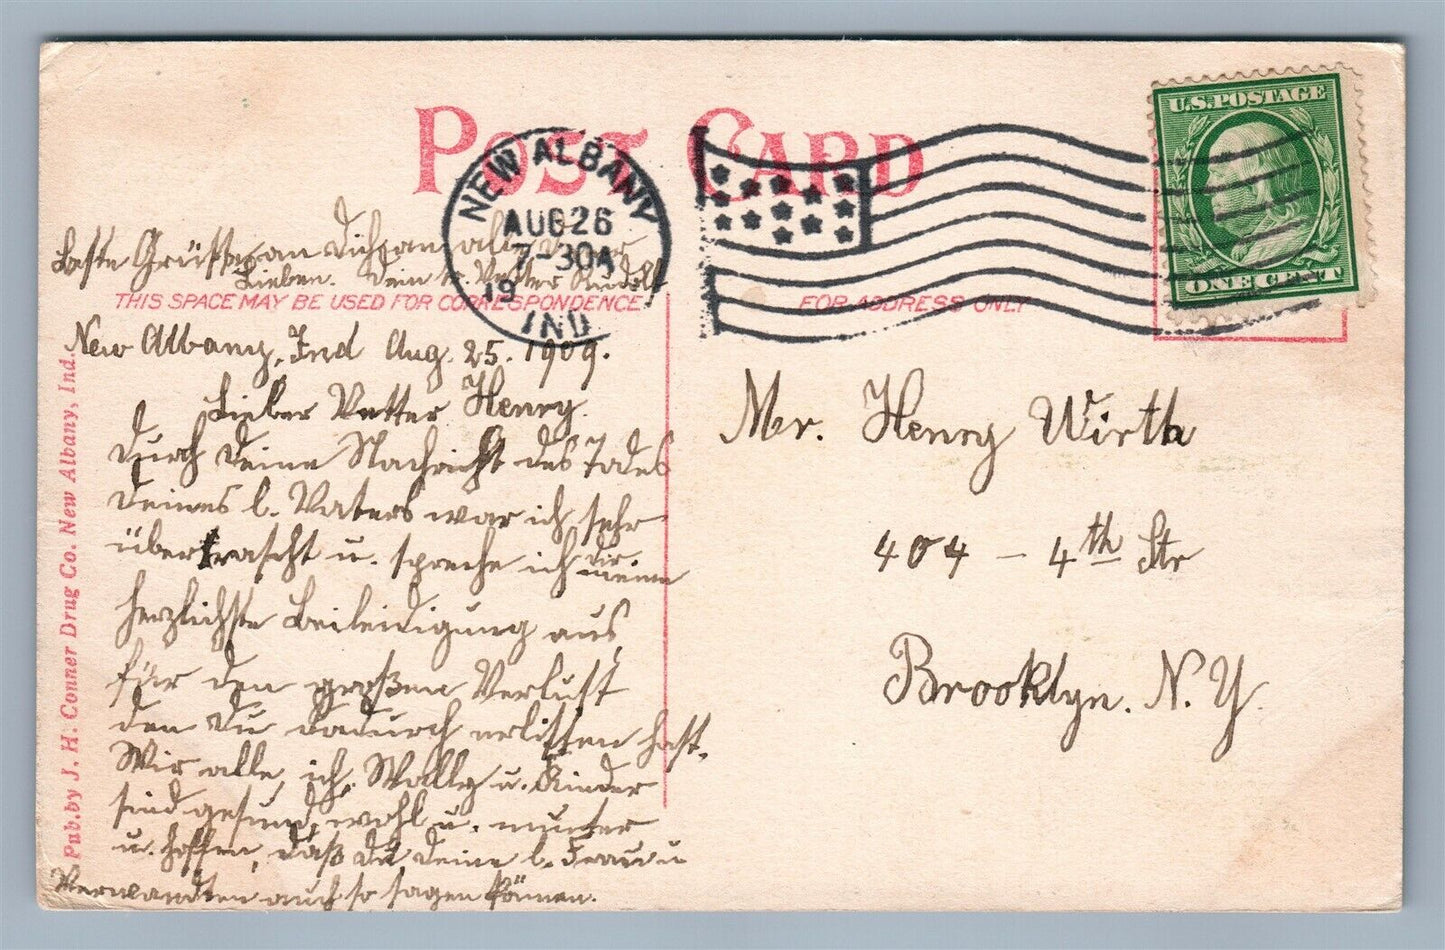 POST CARD
NEW ALBANY
AUG 26
7-30A
19
IND
U.S. POSTAGE
ONE CENT
Beste Grüße an Dich, an alle
Lieben. Dein tr. Vetter Rudolf
THIS SPACE MAY BE USED FOR CORRESPONDENCE.
FOR ADDRESS ONLY
New Albany, Ind Aug. 25. 1909.
Lieber Vetter Henry.
Durch Deine Nachricht des Todes
Deines l. Vaters war ich sehr
überrascht u. spreche ich dir meine
herzlichste Beileidigung aus,
für den großen Verlust
den Du dadurch erlitten hast.
Wir alle, ich, Wally u. Kinder
sind gesund, wohl u. munter
u. hoffen, daß Du, Deine l. Frau u
Verwandten auch so sagen können.
Mr. Henry Wirth
404 – 4th Str
Brooklyn. N. Y.
Pub. by J. H. Conner Drug Co. New Albany, Ind.